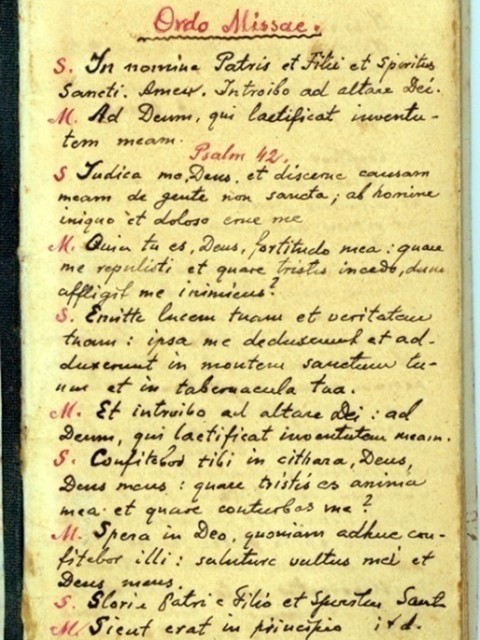 Ordo Missae.
S. In nomine Patris et Filii et Spiritus
Sancti. Amen. Introibo ad altare Dei.
M. Ad Deum, qui laetificat iuventu-
tem meam.
Psalm 42.
S Iudica me, Deus, et discerne causam
meam de gente non sancta; ab homine
iniquo et doloso erue me
M. Quia tu es, Deus, fortitudo mea: quare
me repulisti et quare tristis incedo, dum
affligit me inimicus?
S. Emitte lucem tuam et veritatem
tuam: ipsa me deduxerunt et ad-
duxerunt in montem sanctum tu-
um et in tabernacula tua.
M. Et introibo ad altare Dei: ad
Deum, qui laetificat iuventutem meam.
S. Confitebor tibi in cithara, Deus,
Deus meus: quare tristis es anima
mea et quare conturbas me?
M. Spera in Deo, quoniam adhuc con-
fitebor illi: salutare vultus mei et
Deus meus.
S. Gloria Patri e Filio et Spiritui Sanct
M. Sicut erat in principio itd.